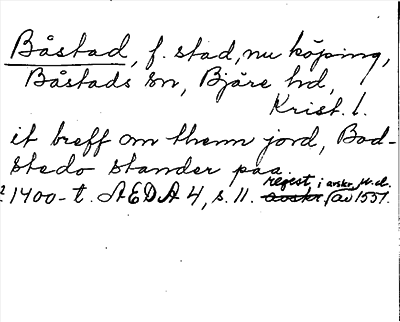 Båstad, f. stad, nu köping,
Båstads sn, Bjäre hd,
Krist. l.
it breff om thenn jord, Bod-
stedo stander paa.
1400-t. AEDA 4, s. 11. avskr regest, i avskr. av 1551.